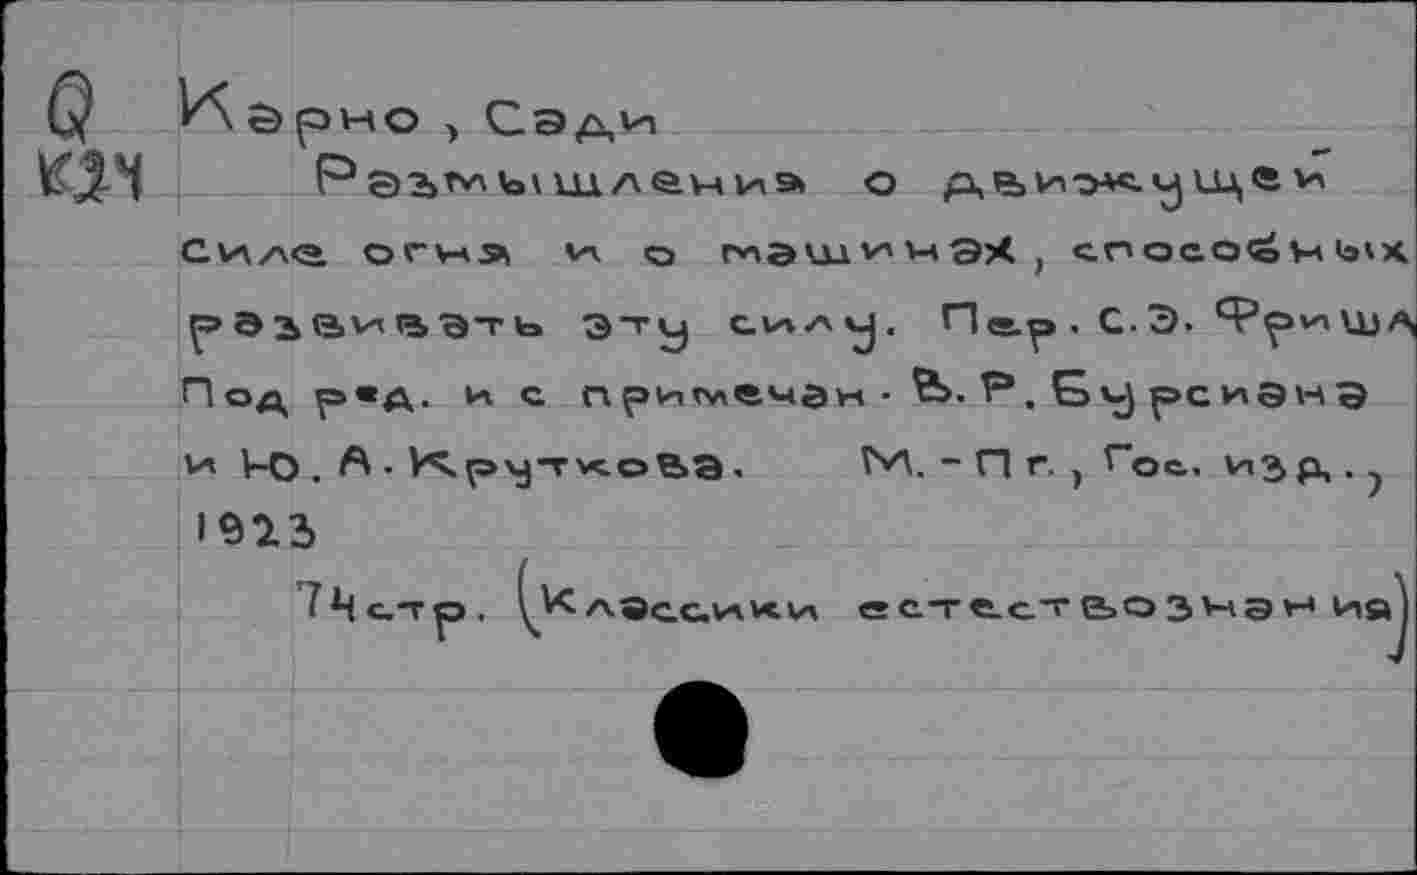 Q Карно, Сади
К24 Размышления о движущей
силе огня и о машинах, способных
развивать эту силу. Пер. С.Э. Фриша
Под ред. и с примечан. В.Р. Бурсиана
и Ю.А. Круткова. М.-Пг., Гос. изд.,
1923
74 стр. (Классики естествознания)